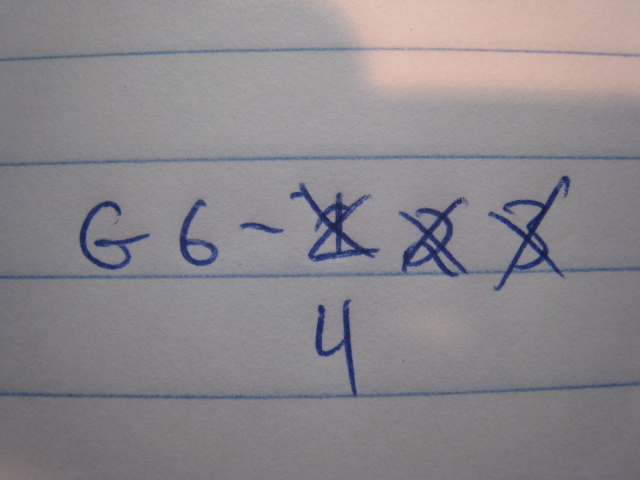 G6-1 2 3
4